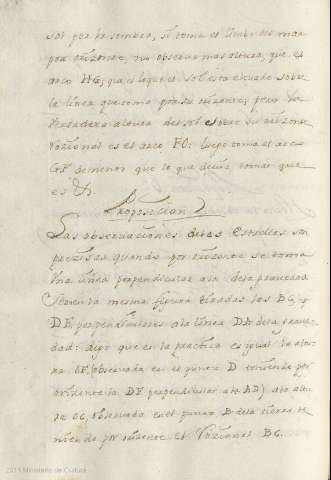 sol por la sombra, si toma el limbo del mar
por orizonte, no observa mas altura, que el
arco HG, que es lo que el sol esta elevado sobre
la linea que toma por su orizonte, pero la
verdadera altura del sol sobre su orizonte
razional es el arco FG: luego toma el arco
GF de menor que lo que devia tomar que
es &.
Proposicion 2
Las observaciones de las Estrellas son
precissas quando por orizonte se toma
una linea perpendicular a la de la gravedad
Sean en la mesma figura tiradas las BG, y
DF, perpendiculares a la linea DA de la grave
dad: digo que en la practica es igual la altu
ra EF, observada en el punto D teniendo por
orizonte la DF perpendicular a la AD, a la altu
ra EC, observada en el punto B de la tierra te
niendo por orizonte el Razional BG.
2011 Ministerio de Cultura